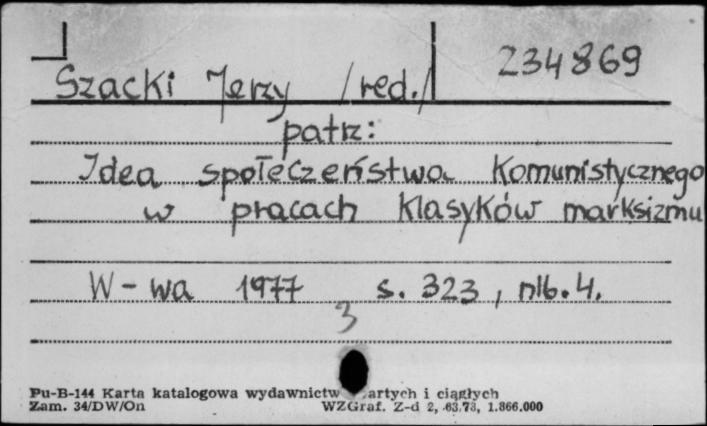 234869
Szacki Jerzy /red./
patrz:
Idea społeczeństwa Komunistycznego
w pracach Klasyków marksizmu
W-wa 1977 s. 323, nlb. 4.
3
Pu-B-144 Karta katalogowa wydawnictw artych i ciągłych
Zam. 34/DW/On WZGraf. Z-d 2, 63.73, 1.866.000